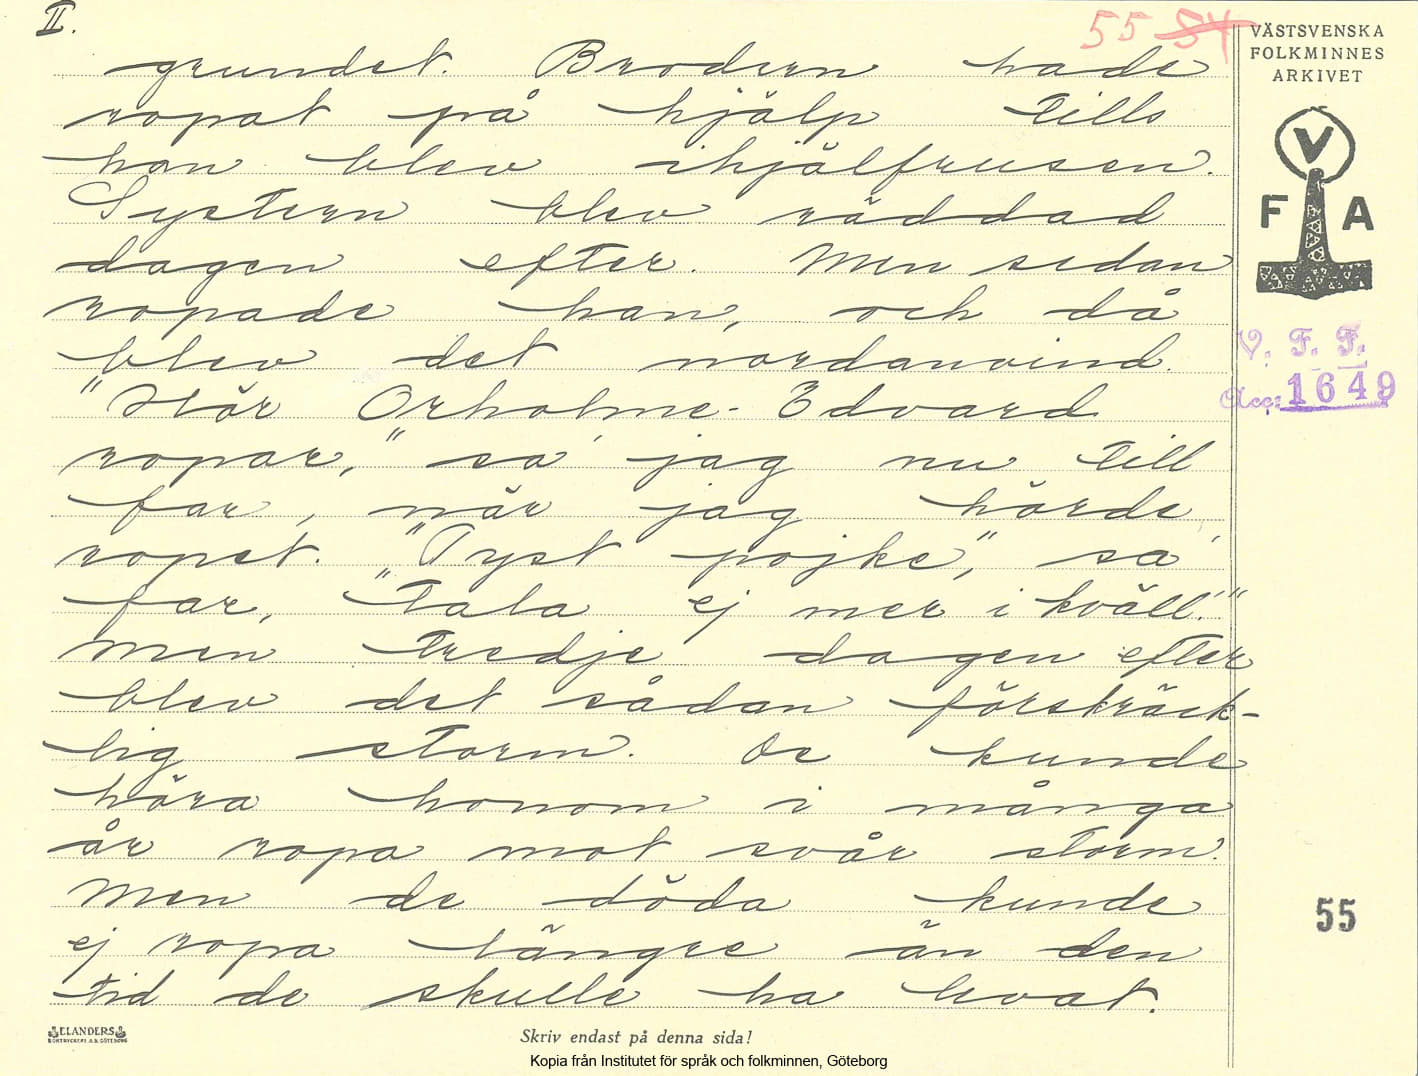 II.
55 54
VÄSTSVENSKA
FOLKMINNES
ARKIVET
grundet. Brodern hade
ropat på hjälp tills
han blev ihjälfrusen.
Systern blev räddad
dagen efter. Men sedan
ropade han, och då
blev det nordanvind.
"Hör Orholme-Edvard
ropar," sa' jag nu till
far, när jag hörde
ropet. "Tyst pojke", sa'
far, "tala ej mer i kväll!"
men tredje dagen efter
blev det sådan förskräck-
lig storm. De kunde
höra honom i många
år ropa mot svår storm.
Men de döda kunde
ej ropa längre än den
tid de skulle ha levat.
V
F A
V. F. F.
Acc: 1649
55
ELANDERS
BOKTRYCKERI A.B. GÖTEBORG
Skriv endast på denna sida!
Kopia från Institutet för språk och folkminnen, Göteborg